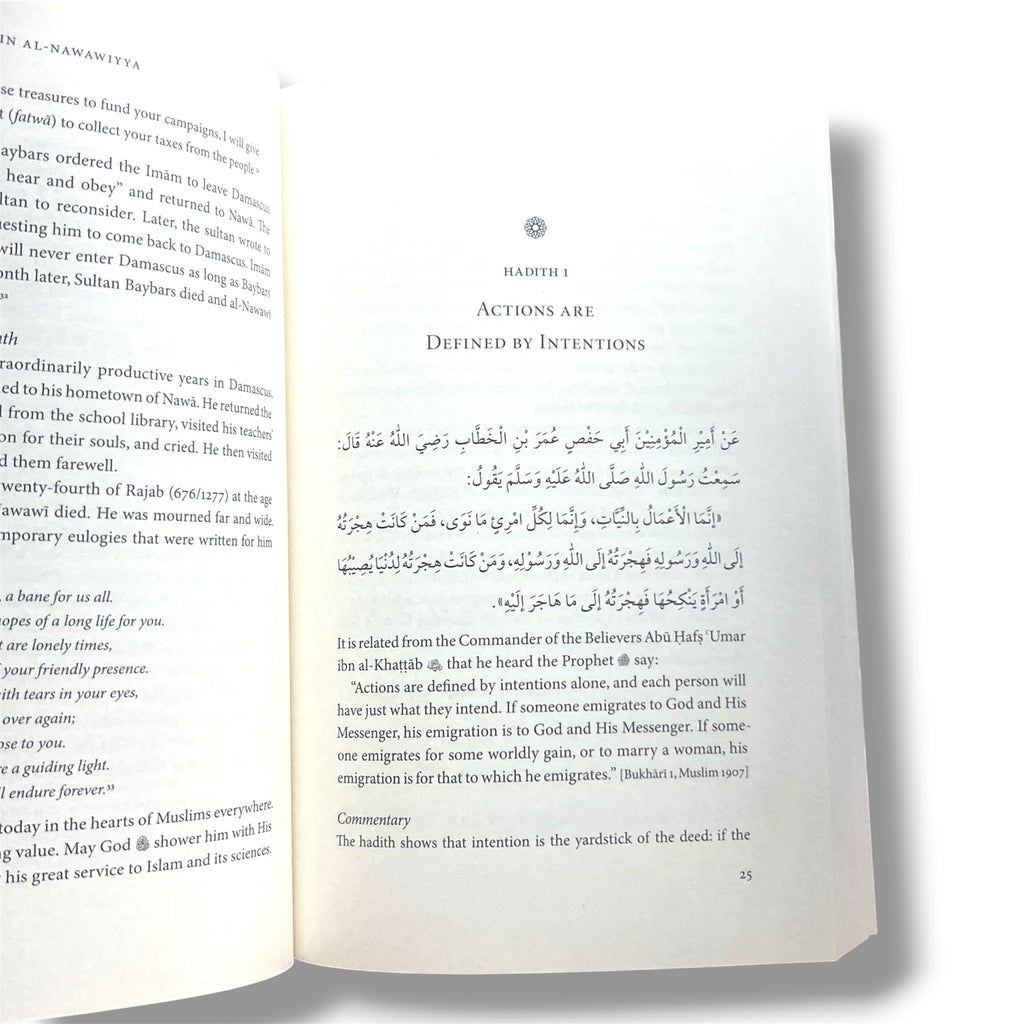 IN AL-NAWAWIYYA
se treasures to fund your campaigns, I will give
t (fatwā) to collect your taxes from the people."
aybars ordered the Imām to leave Damascus.
hear and obey” and returned to Nawā. The
ltan to reconsider. Later, the sultan wrote to
uesting him to come back to Damascus. Imām
will never enter Damascus as long as Baybars
onth later, Sultan Baybars died and al-Nawawī
32
ath
raordinarily productive years in Damascus,
ed to his hometown of Nawā. He returned the
l from the school library, visited his teachers’
on for their souls, and cried. He then visited
d them farewell.
twenty-fourth of Rajab (676/1277) at the age
Nawawī died. He was mourned far and wide.
mporary eulogies that were written for him
, a bane for us all.
opes of a long life for you.
t are lonely times,
f your friendly presence.
ith tears in your eyes,
over again;
ose to you.
re a guiding light.
ll endure forever.33
today in the hearts of Muslims everywhere.
ng value. May God shower him with His
his great service to Islam and its sciences.
HADITH 1
Actions are
Defined by Intentions
عَنْ أَمِيْرِ الْمُؤْمِنِيْنَ أَبِي حَفْصٍ عُمَرَ بْنِ الْخَطَّابِ رَضِيَ اللهُ عَنْهُ قَالَ:
سَمِعْتُ رَسُولَ اللهِ صَلَّى اللهُ عَلَيْهِ وَسَلَّمَ يَقُولُ:
«إِنَّمَا الْأَعْمَالُ بِالنِّيَّاتِ، وَإِنَّمَا لِكُلِّ امْرِئٍ مَا نَوَى، فَمَنْ كَانَتْ هِجْرَتُهُ
إِلَى اللهِ وَرَسُولِهِ فَهِجْرَتُهُ إِلَى اللهِ وَرَسُوْلِهِ، وَمَنْ كَانَتْ هِجْرَتُهُ لِدُنْيَا يُصِيْبُهَا
أَوْ امْرَأَةٍ يَنْكِحُهَا فَهِجْرَتُهُ إِلَى مَا هَاجَرَ إِلَيْهِ».
It is related from the Commander of the Believers Abū Ḥafṣ ʿUmar
ibn al-Khaṭṭāb that he heard the Prophet ﷺ say:
“Actions are defined by intentions alone, and each person will
have just what they intend. If someone emigrates to God and His
Messenger, his emigration is to God and His Messenger. If some-
one emigrates for some worldly gain, or to marry a woman, his
emigration is for that to which he emigrates.” [Bukhārī 1, Muslim 1907]
Commentary
The hadith shows that intention is the yardstick of the deed: if the
25